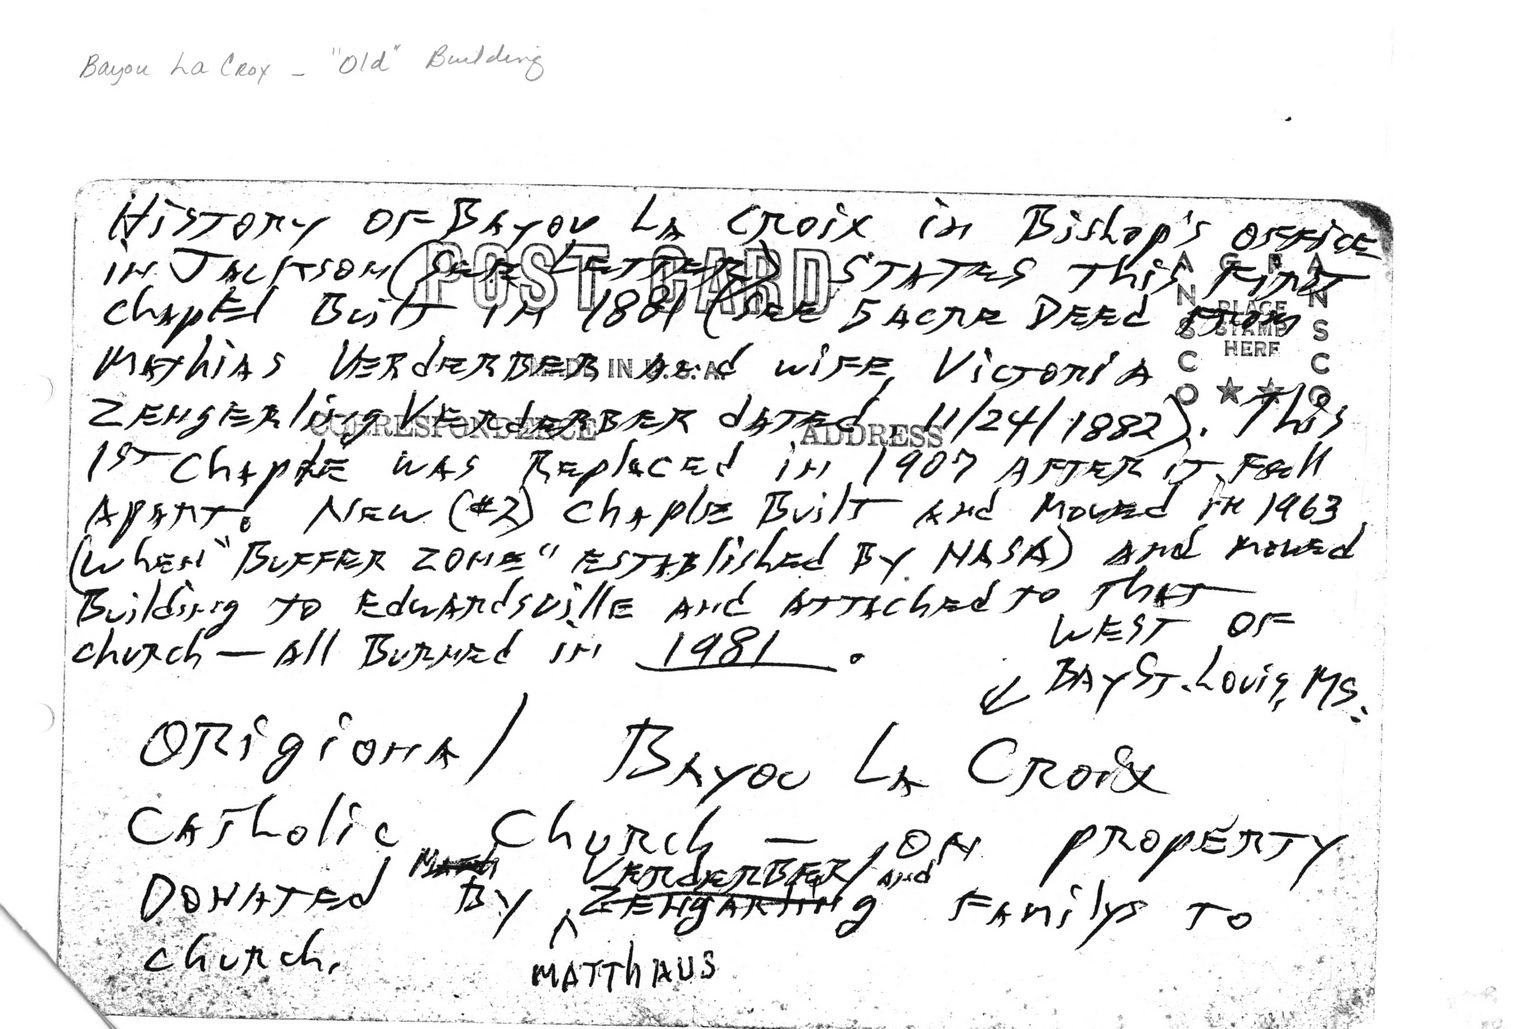 Bayou La Crox - "Old" Building
History of Bayou La Croix in Bishop's office
in Jackson (see letter) states this first
POST CARD
chapel Built in 1881 (see 5 acre Deed from
Mathias Verderber and wife, Victoria
MADE IN U.S.A.
ANSCO AGFA ANSCO
PLACE
STAMP
HERE
Zengerling Verderber dated 11/24/1882). This
CORRESPONDENCE
ADDRESS
1st Chaple was Replaced in 1907 after it fell
Apart. New (#2) Chaple Built and Moved in 1963
(when "Buffer zone" established By NASA) and moved
Building to Edwardsville and attached to that
church — all Burned in 1981.
West of
Bay St. Louis, MS.
Origional Bayou La Croix
Catholic Church — on property
Donated By Matthaus Verderber/Zengarling and Familys to
church.